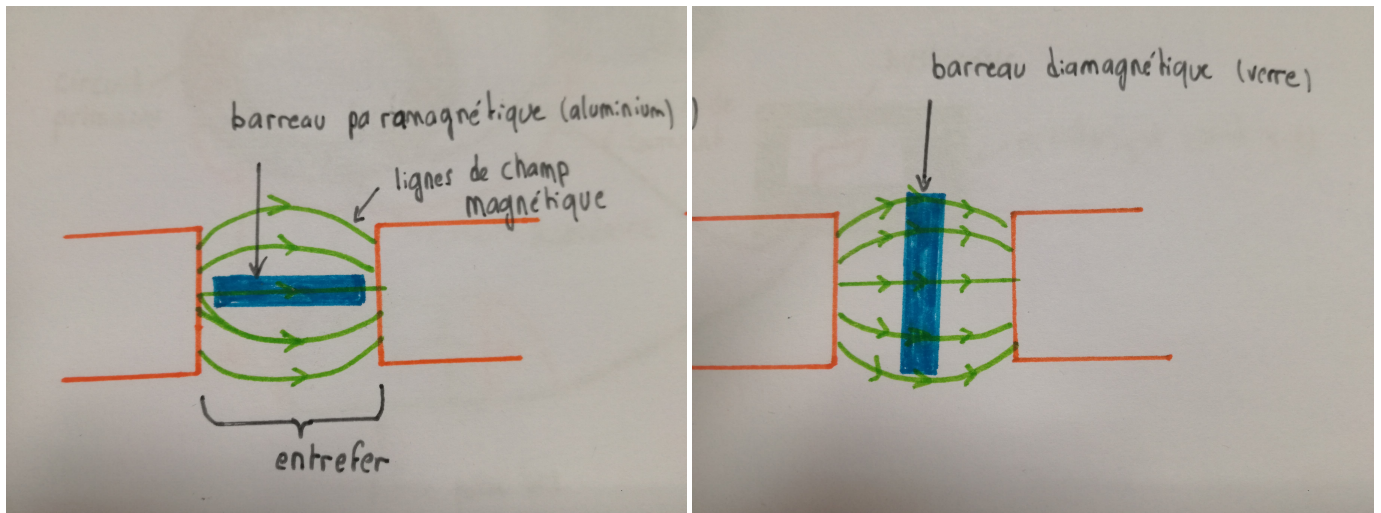 barreau paramagnétique (aluminium)
lignes de champ
magnétique
entrefer
)
barreau diamagnétique (verre)